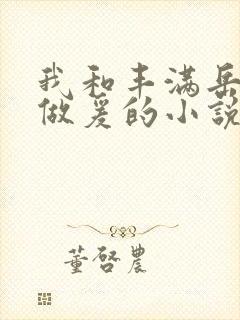 我和丰满岳
做爰的小説
董啓農